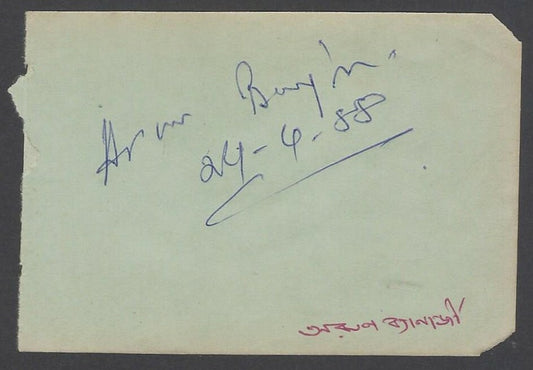 Arun Banerji
24-4-88
অরুণ ব্যানার্জী